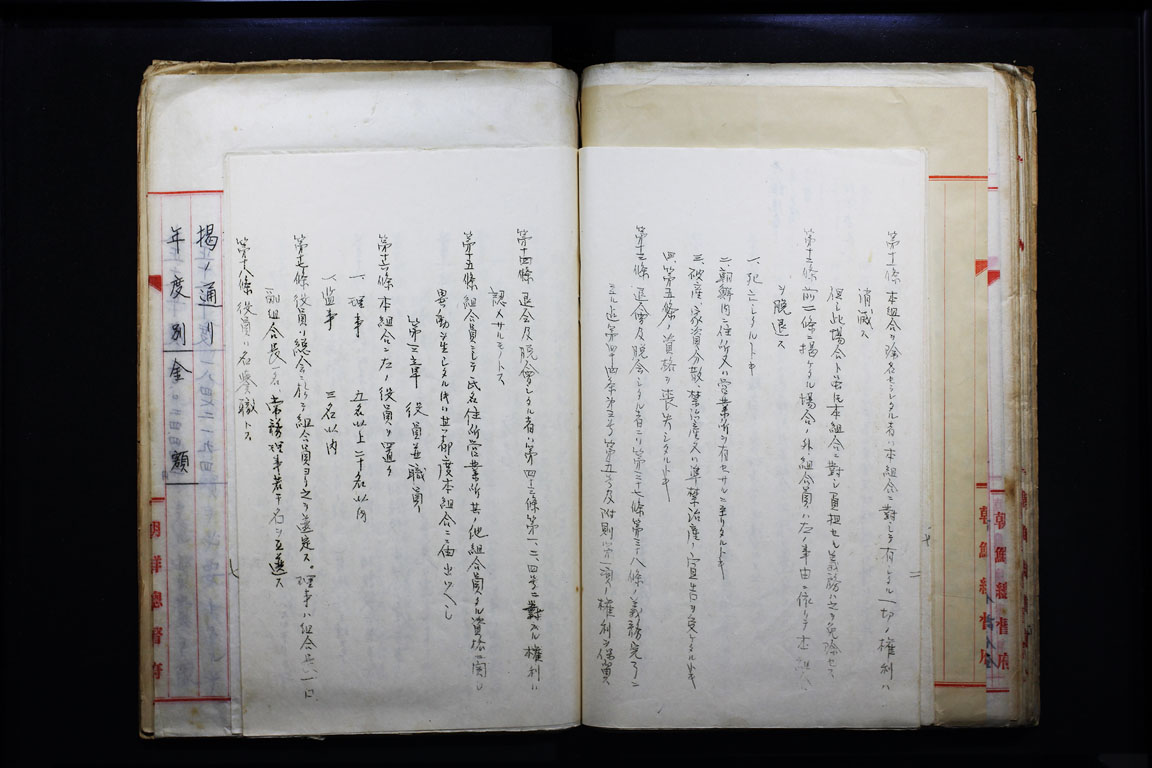 第十一條 本組合ヨリ除名セラレタル者ハ本組合ニ對シテ有シタル一切ノ權利ハ
消滅ス
但シ此場合ト雖モ本組合ニ對シ負担セシ義務ハ之ヲ免除セス
第十二條 前一條ニ掲ケタル場合ノ外組合員ハ左ノ事由ニ依リテ本組合
ヲ脱退ス
一、死亡シタルトキ
二、朝鮮内ニ住所又ハ營業所ヲ有セサルニ至リタルトキ
三、破産、家資分散、禁治産又ハ準禁治産ノ宣告ヲ受ケタルトキ
四、第五條ノ資格ヲ喪失シタルトキ
第十三條 退會及脱会シタル者ニハ第三十七條第三十八條ノ義務完了ニ
至ル迄第四十四条第三号第五号及附則第一項ノ權利ヲ保買
第十四條 退会及脱會シタル者ハ第四十三條第一、二、四号ニ對スル權利ハ
認メサルモノトス
第十五條 組合員ニシテ氏名住所営業所其ノ他組合員タル資格ニ関シ
異動ヲ生シタル時ハ其ノ都度本組合ニ届出ツヘシ
第三章 役員並職員
第十六條 本組合ニ左ノ役員ヲ置ク
一、理事 五名以上二十名以内
一、監事 三名以内
第十七條 役員ハ總会ニ於テ組合員ヨリ之ヲ選定ス。理事ハ組合長一名、
副組合長一名、常務理事若干名ヲ互選ス
第十八條 役員ハ名譽職トス
揭ノ通別
年度別金額
朝鮮總督府